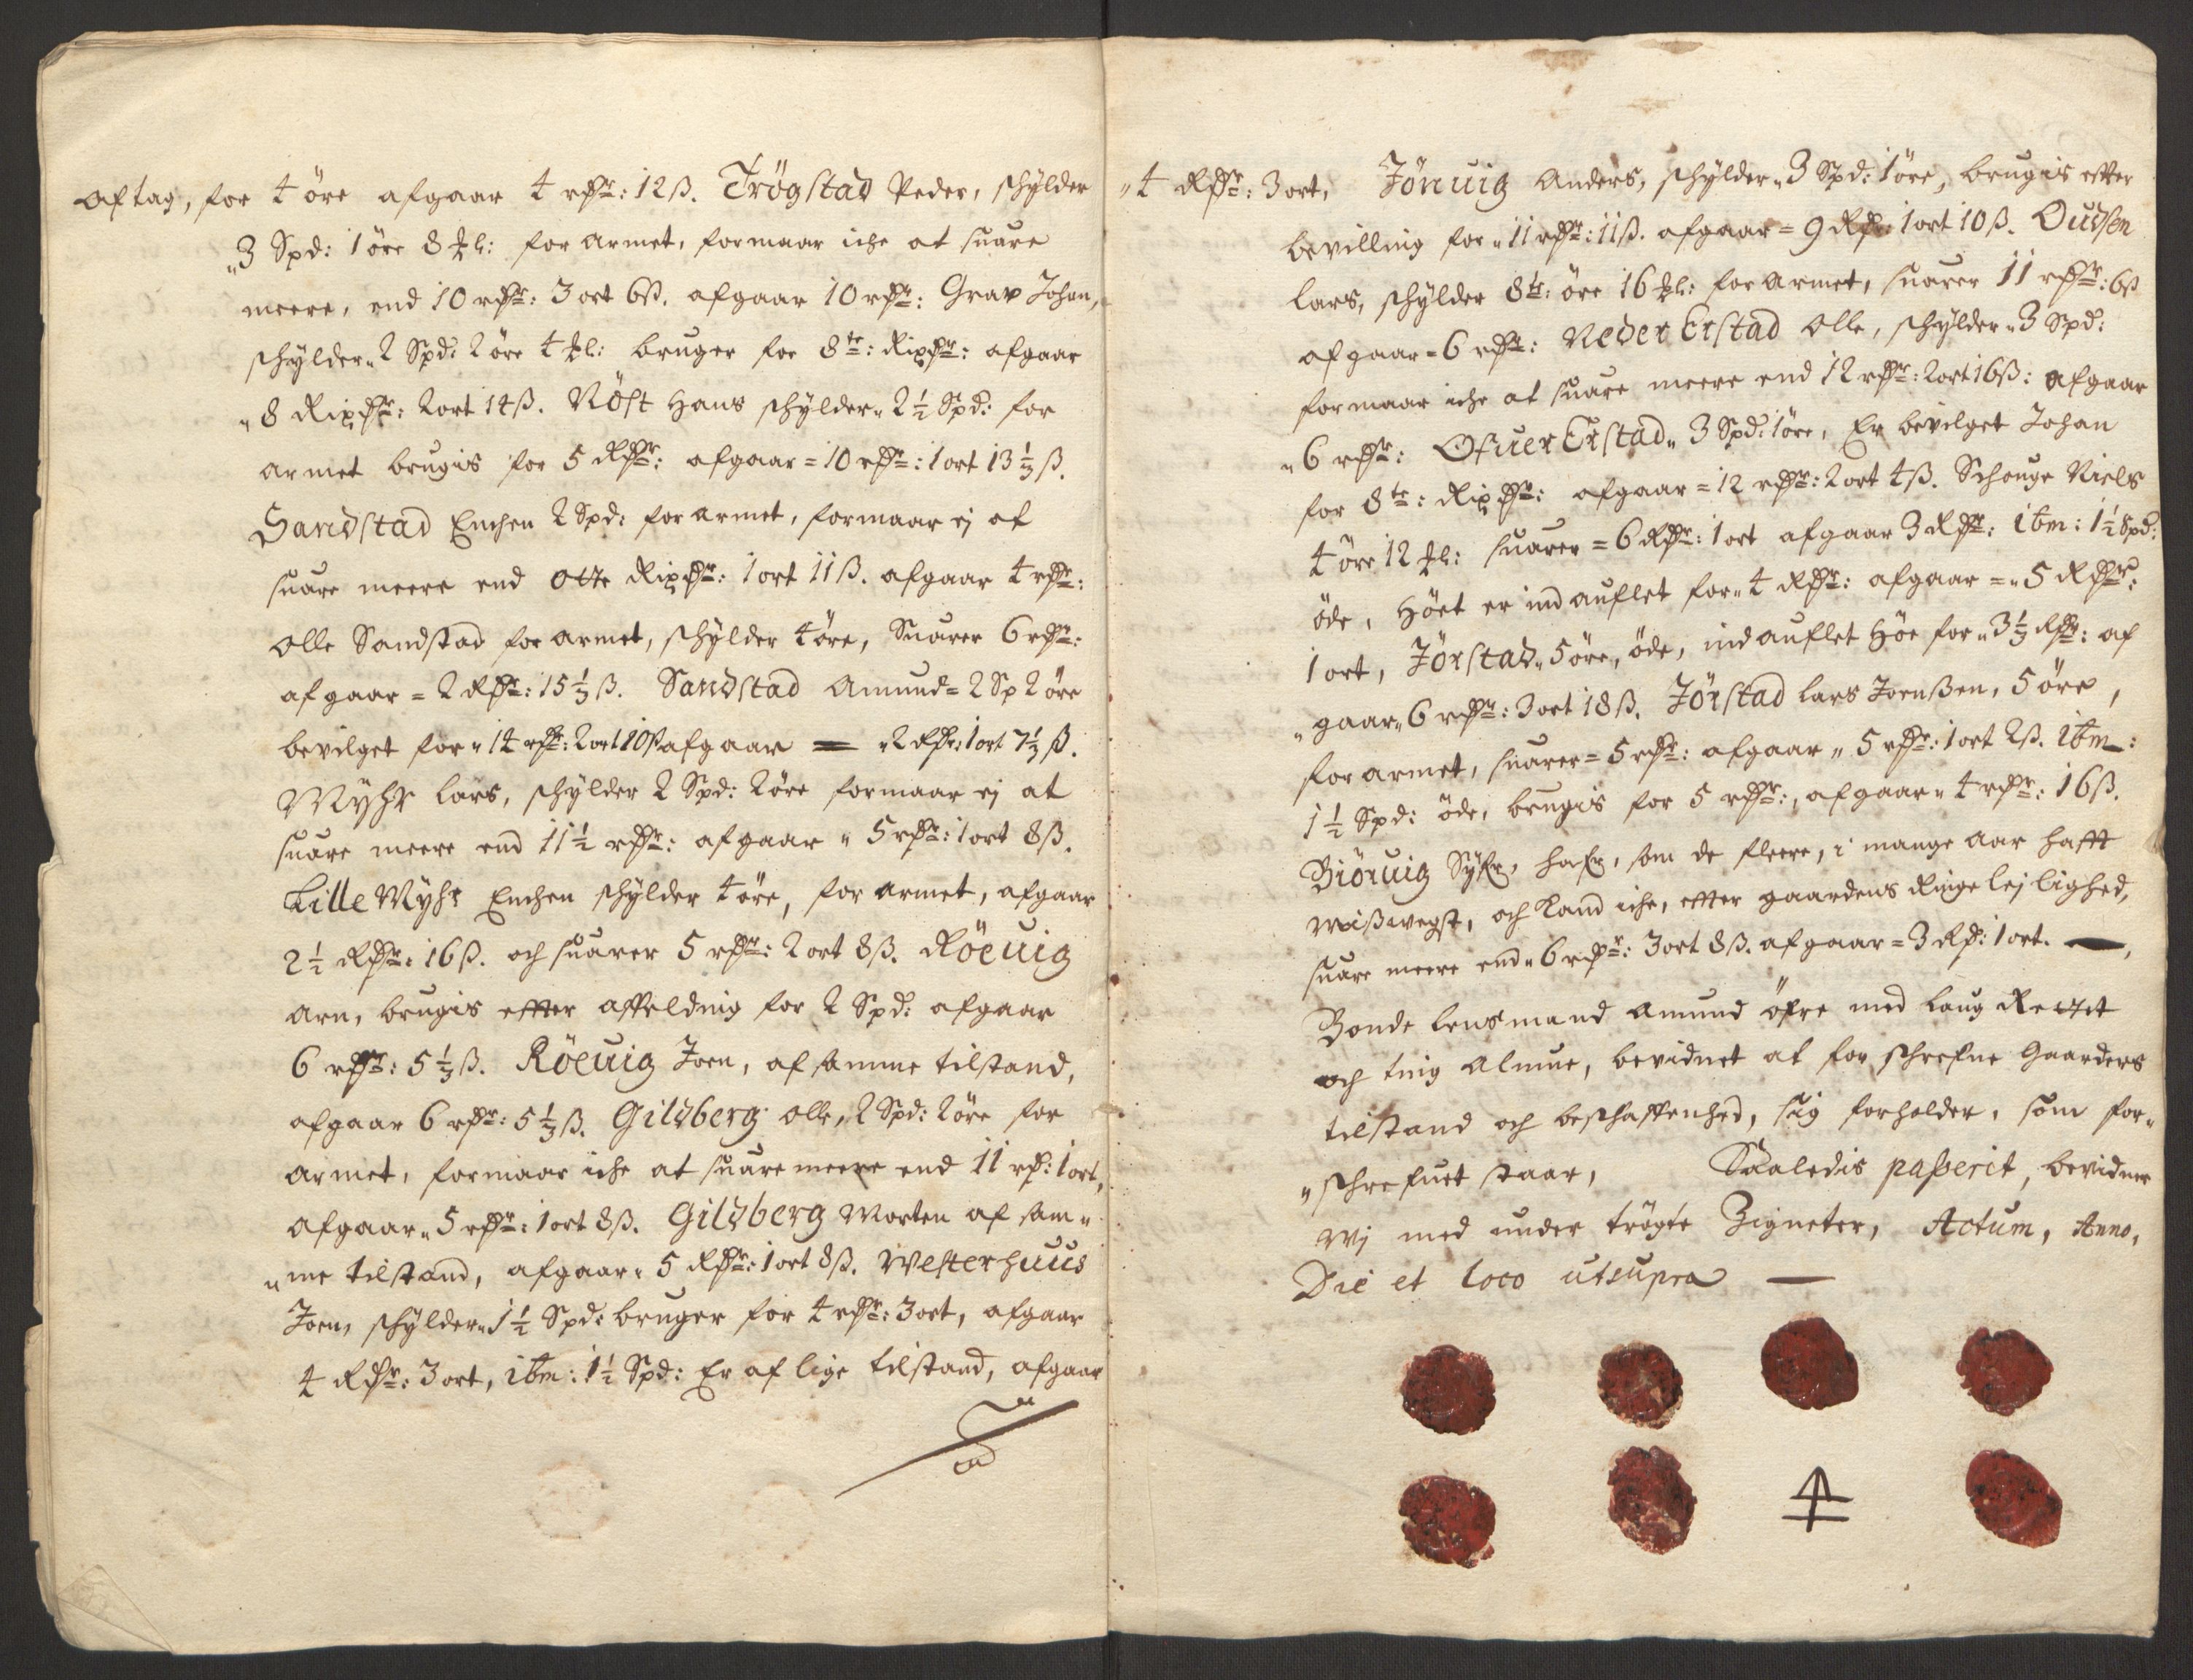 aftag, for 4 öre afgaar 4 rdr: 12 ß. Trögstad Peder, schylder
3 Spd: 1 öre 8 #l: for armet, formaar iche at suare
meere, end 10 rdr: 3 ort 6 ß. afgaar 10 rdr: Grax Johan,
schylder 2 Spd: 2 öre 4 #l: bruger for 8te: Rixdr: afgaar
8 Rixdr: 2 ort 14 ß. Röst Hans schylder 2 1/2 Spd: for
armet brugis for 5 Rdr: afgaar = 10 rdr: 1 ort 13 1/3 ß.
Sandstad Enchen 2 Spd: for armet, formaar ej at
suare meere end otte Rixdr: 1 ort 11 ß. afgaar 4 rdr:
Olle Sandstad for armet, schylder 4 öre, Suarer 6 rdr:
afgaar = 2 Rdr: 15 1/3 ß. Sandstad Amund = 2 Sp 2 öre
bevilget for 14 rdr: 2 ort 10 ß afgaar = 2 Rdr: 1 ort 7 1/3 ß.
Myhr Lars, schylder 2 Spd: 2 öre formaar ej at
suare meere end 11 1/2 rdr: afgaar 5 rdr: 1 ort 8 ß.
Lille Myhr Enchen schylder 4 öre, for armet, afgaar
2 1/2 Rdr: 16 ß. och suarer 5 rdr: 2 ort 8 ß. Röevig
Arn, brugis effter affelding for 2 Spd: afgaar
6 rdr: 5 1/3 ß. Röevig Joen, af samme tilstand,
afgaar 6 rdr: 5 1/3 ß. Gilberg Olle, 2 Spd: 2 öre for
armet, formaar iche at suare meere end 11 rd: 1 ort,
afgaar 5 rdr: 1 ort 8 ß. Gilberg Morten af sam-
me tilstand, afgaar 5 Rdr: 1 ort 8 ß. Westerhuus
Joen, schylder 1 1/2 Spd: bruger for 4 rdr: 3 ort, afgaar
4 Rdr: 3 ort, itm: 1 1/2 Spd: Er af lige tilstand, afgaar
4 Rdr: 3 ort, Jönuig Anders, schylder 3 Spd: 1 öre, brugis efter
bevilling for 11 rdr: 11 ß. afgaar = 9 Rdr: 1 ort 10 ß. Oudsen
Lars, schylder 8te: öre 16 #l: for armet, suarer 11 rdr: 6 ß
afgaar = 6 rdr: Neder Erstad Olle, schylder 3 Spd:
formaar iche at suare meere end 12 rdr: 2 ort 16 ß: afgaar
6 rdr: Ofuer Erstad 3 Spd: 1 öre, Er bevilget Johan
for 8te: Rixdr: afgaar = 12 rdr: 2 ort 4 ß. Schouge Niels
4 öre 12 #l: suarer = 6 Rdr: 1 ort afgaar 3 Rdr: itm: 1 1/2 Spd:
öde, Höet er ind auflet for 4 Rdr: afgaar = 5 Rdr:
1 ort, Jörstad 5 öre, öde, indauflet Höe for 3 1/3 Rdr: af
gaar 6 rdr: 3 ort 18 ß. Jörstad Lars Joenßen, 5 öre,
for armet, suarer = 5 rdr: afgaar 5 rdr: 1 ort 2 ß. itm:
1 1/2 Spd: öde, brugis for 5 rdr:, afgaar 4 rdr: 16 ß.
Biöruig hafr, som de fleere, i mange aar hafft
Mißwegst, och Kand iche, effter gaardens Ringe lejlighed,
suare meere end 6 rdr: 3 ort 8 ß. afgaar = 3 Rd: 1 ort.
Bonde Lensmand Amund öfre med Laug Rettet
och ting Almue, bevidnet at forschrefne Gaarders
tilstand och beschaffenhed, sig forholder, som for-
schrefuet staar, Saaledis paßerit, bevidner
Wj med under trögte Zigneter, Actum, Anno,
Die et loco utsupra